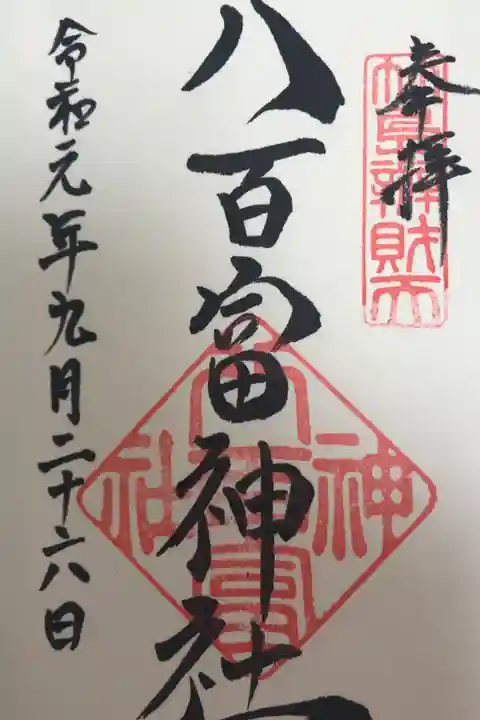 奉拝
竹島辨財天
八百富神社
八百富神社
令和元年九月二十六日